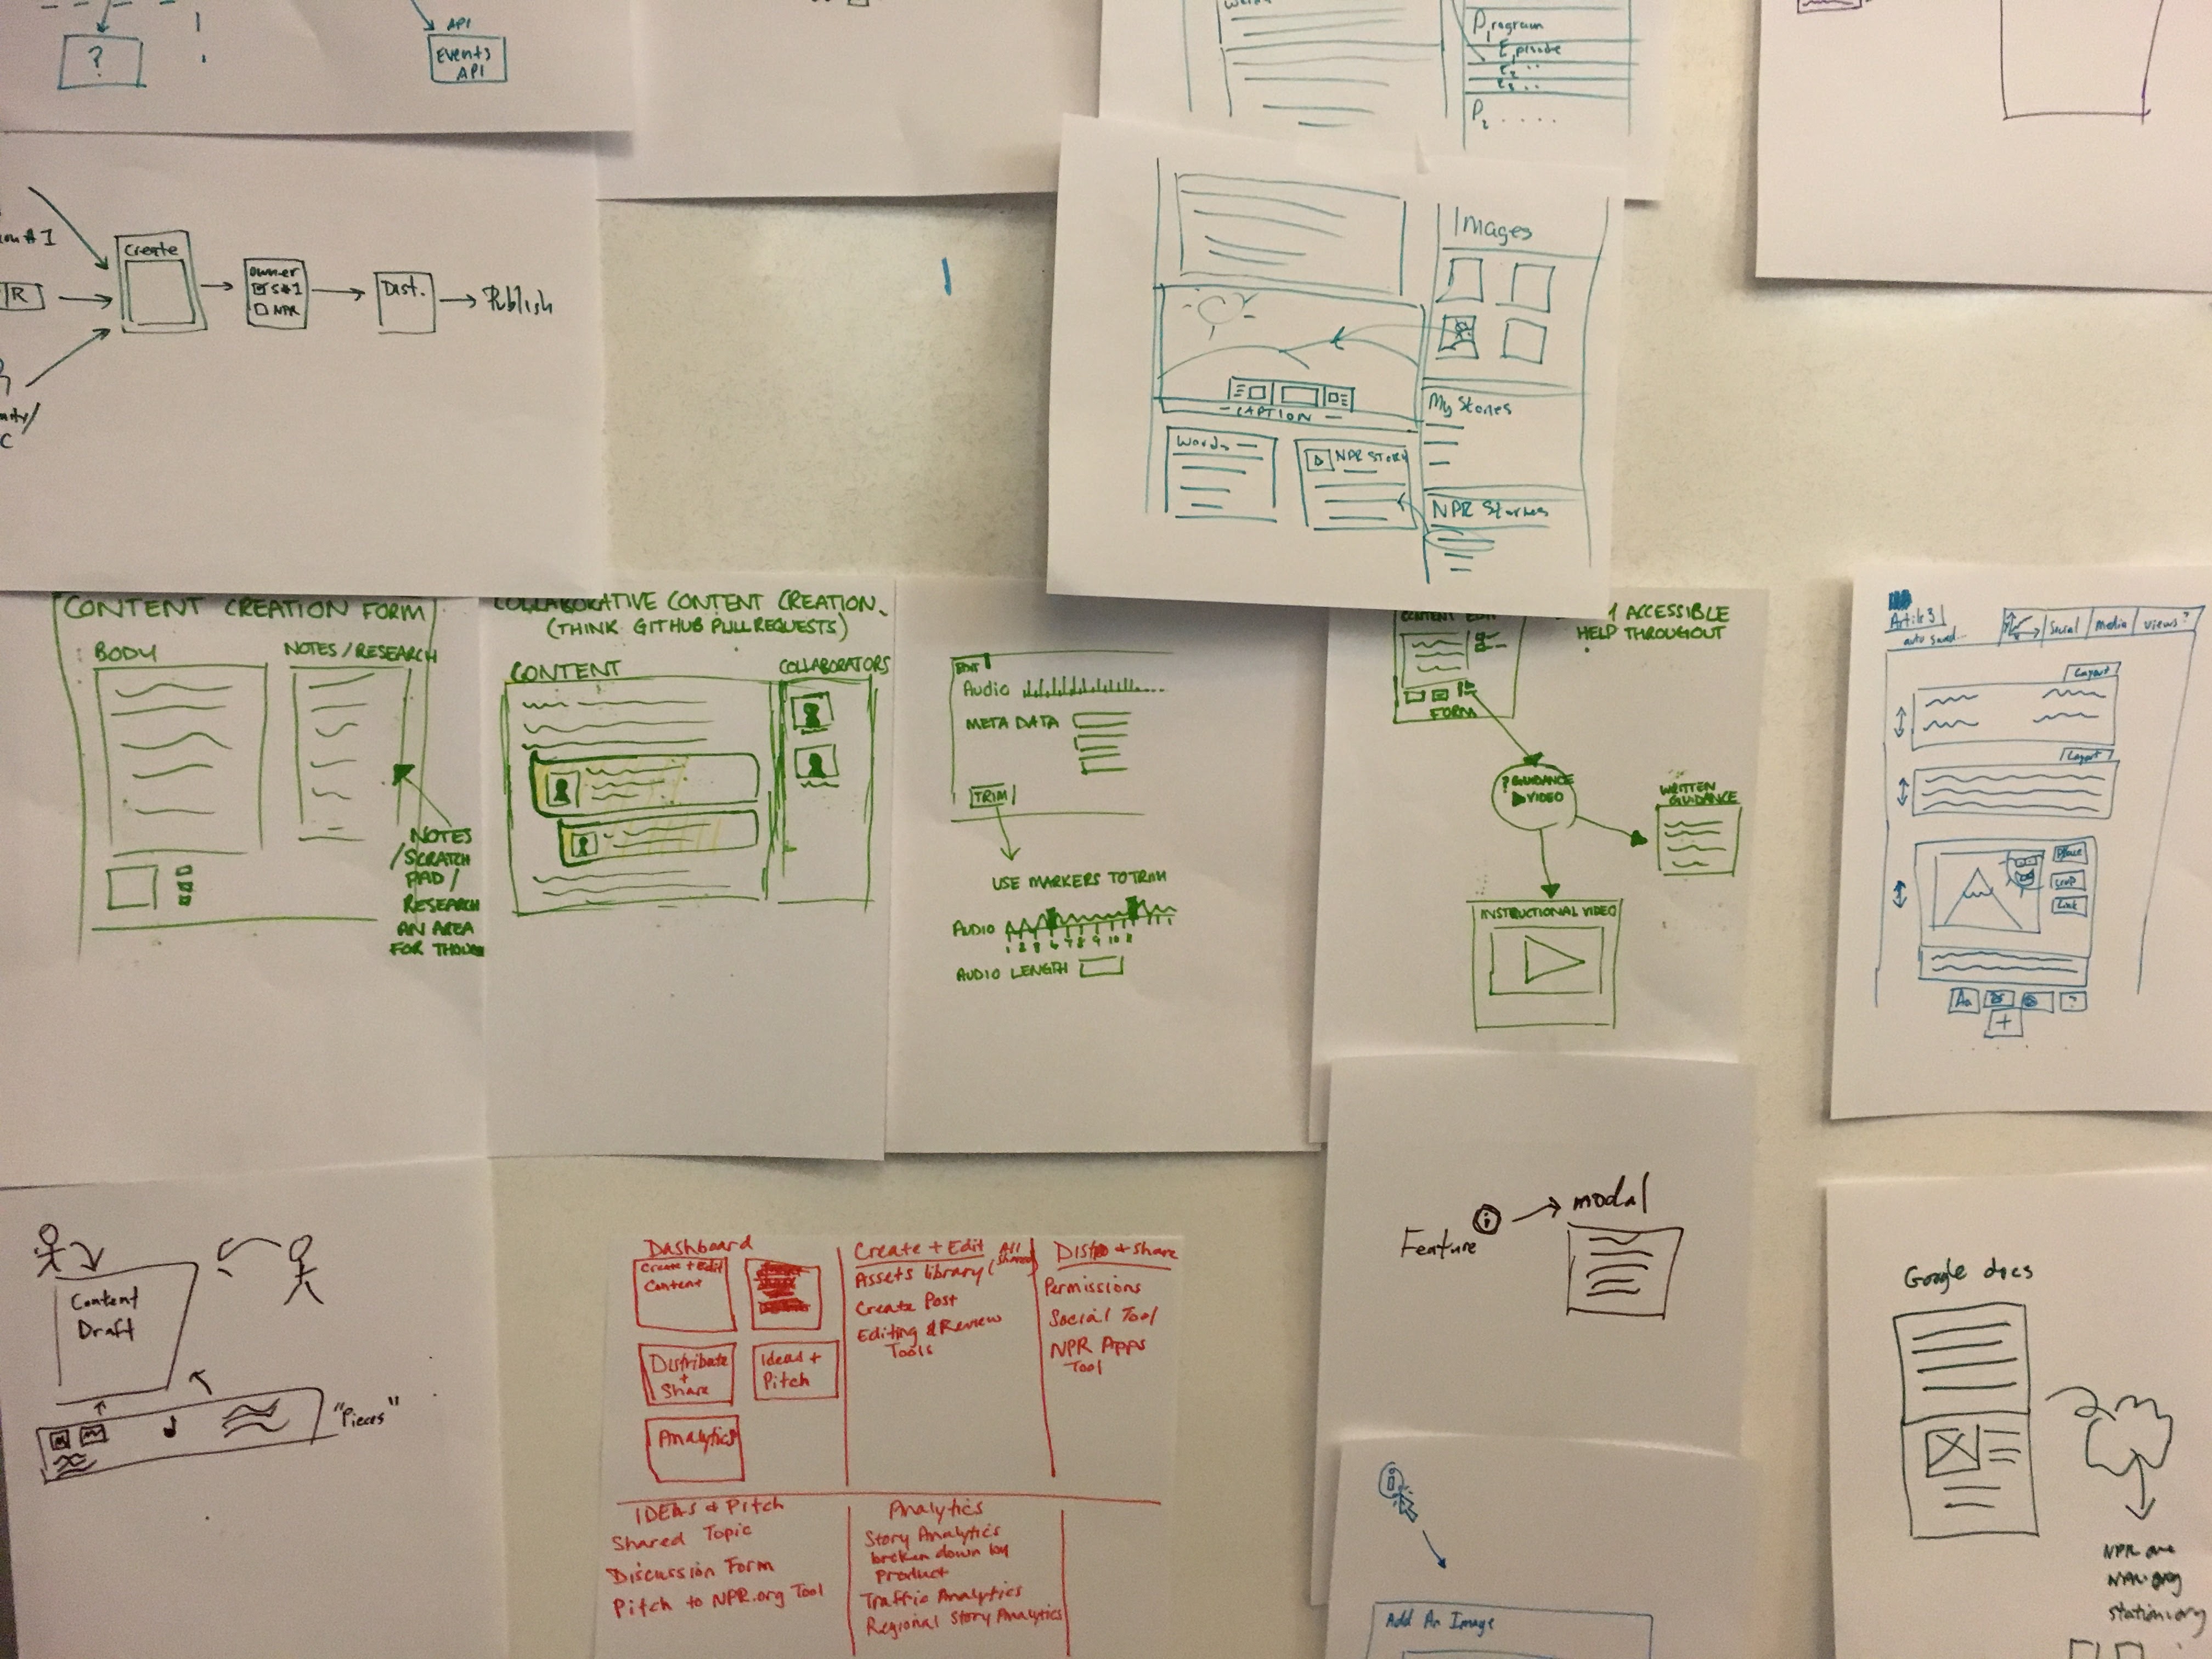 ?
API
Events
API
Program
Episode
P2 . . . .
R
Create
Owner
S#1
NPR
Dist.
Publish
Images
CAPTION
My Stories
Words
NPR STORY
NPR Stories
CONTENT CREATION FORM
BODY
NOTES / RESEARCH
NOTES
/SCRATCH
PAD /
RESEARCH
AN AREA
FOR
COLLABORATIVE CONTENT CREATION.
(THINK GITHUB PULL REQUESTS)
CONTENT
COLLABORATORS
EDIT
Audio
META DATA
TRIM
USE MARKERS TO TRIM
AUDIO
AUDIO LENGTH
CONTENT EDIT
FORM
ACCESSIBLE
HELP THROUGOUT
? GUIDANCE
VIDEO
WRITTEN
GUIDANCE
INSTRUCTIONAL VIDEO
auto saved...
Social
Media
views?
Layout
Layout
Link
Aa
?
+
Content
Draft
"Pieces"
Dashboard
Create + Edit
Content
Distribute
+
Share
Ideas +
Pitch
Analytics
Create + Edit
Assets library (All shared)
Create Post
Editing & Review
Tools
+ Share
Permissions
Social Tool
NPR Apps
Tool
IDEAS & Pitch
Shared Topic
Discussion Form
Pitch to NPR.org Tool
Analytics
Story Analytics
broken down by
Product
Traffic Analytics
Regional Story Analytics
Feature
i
modal
i
Add An Image
Google docs
NPR one
station.org